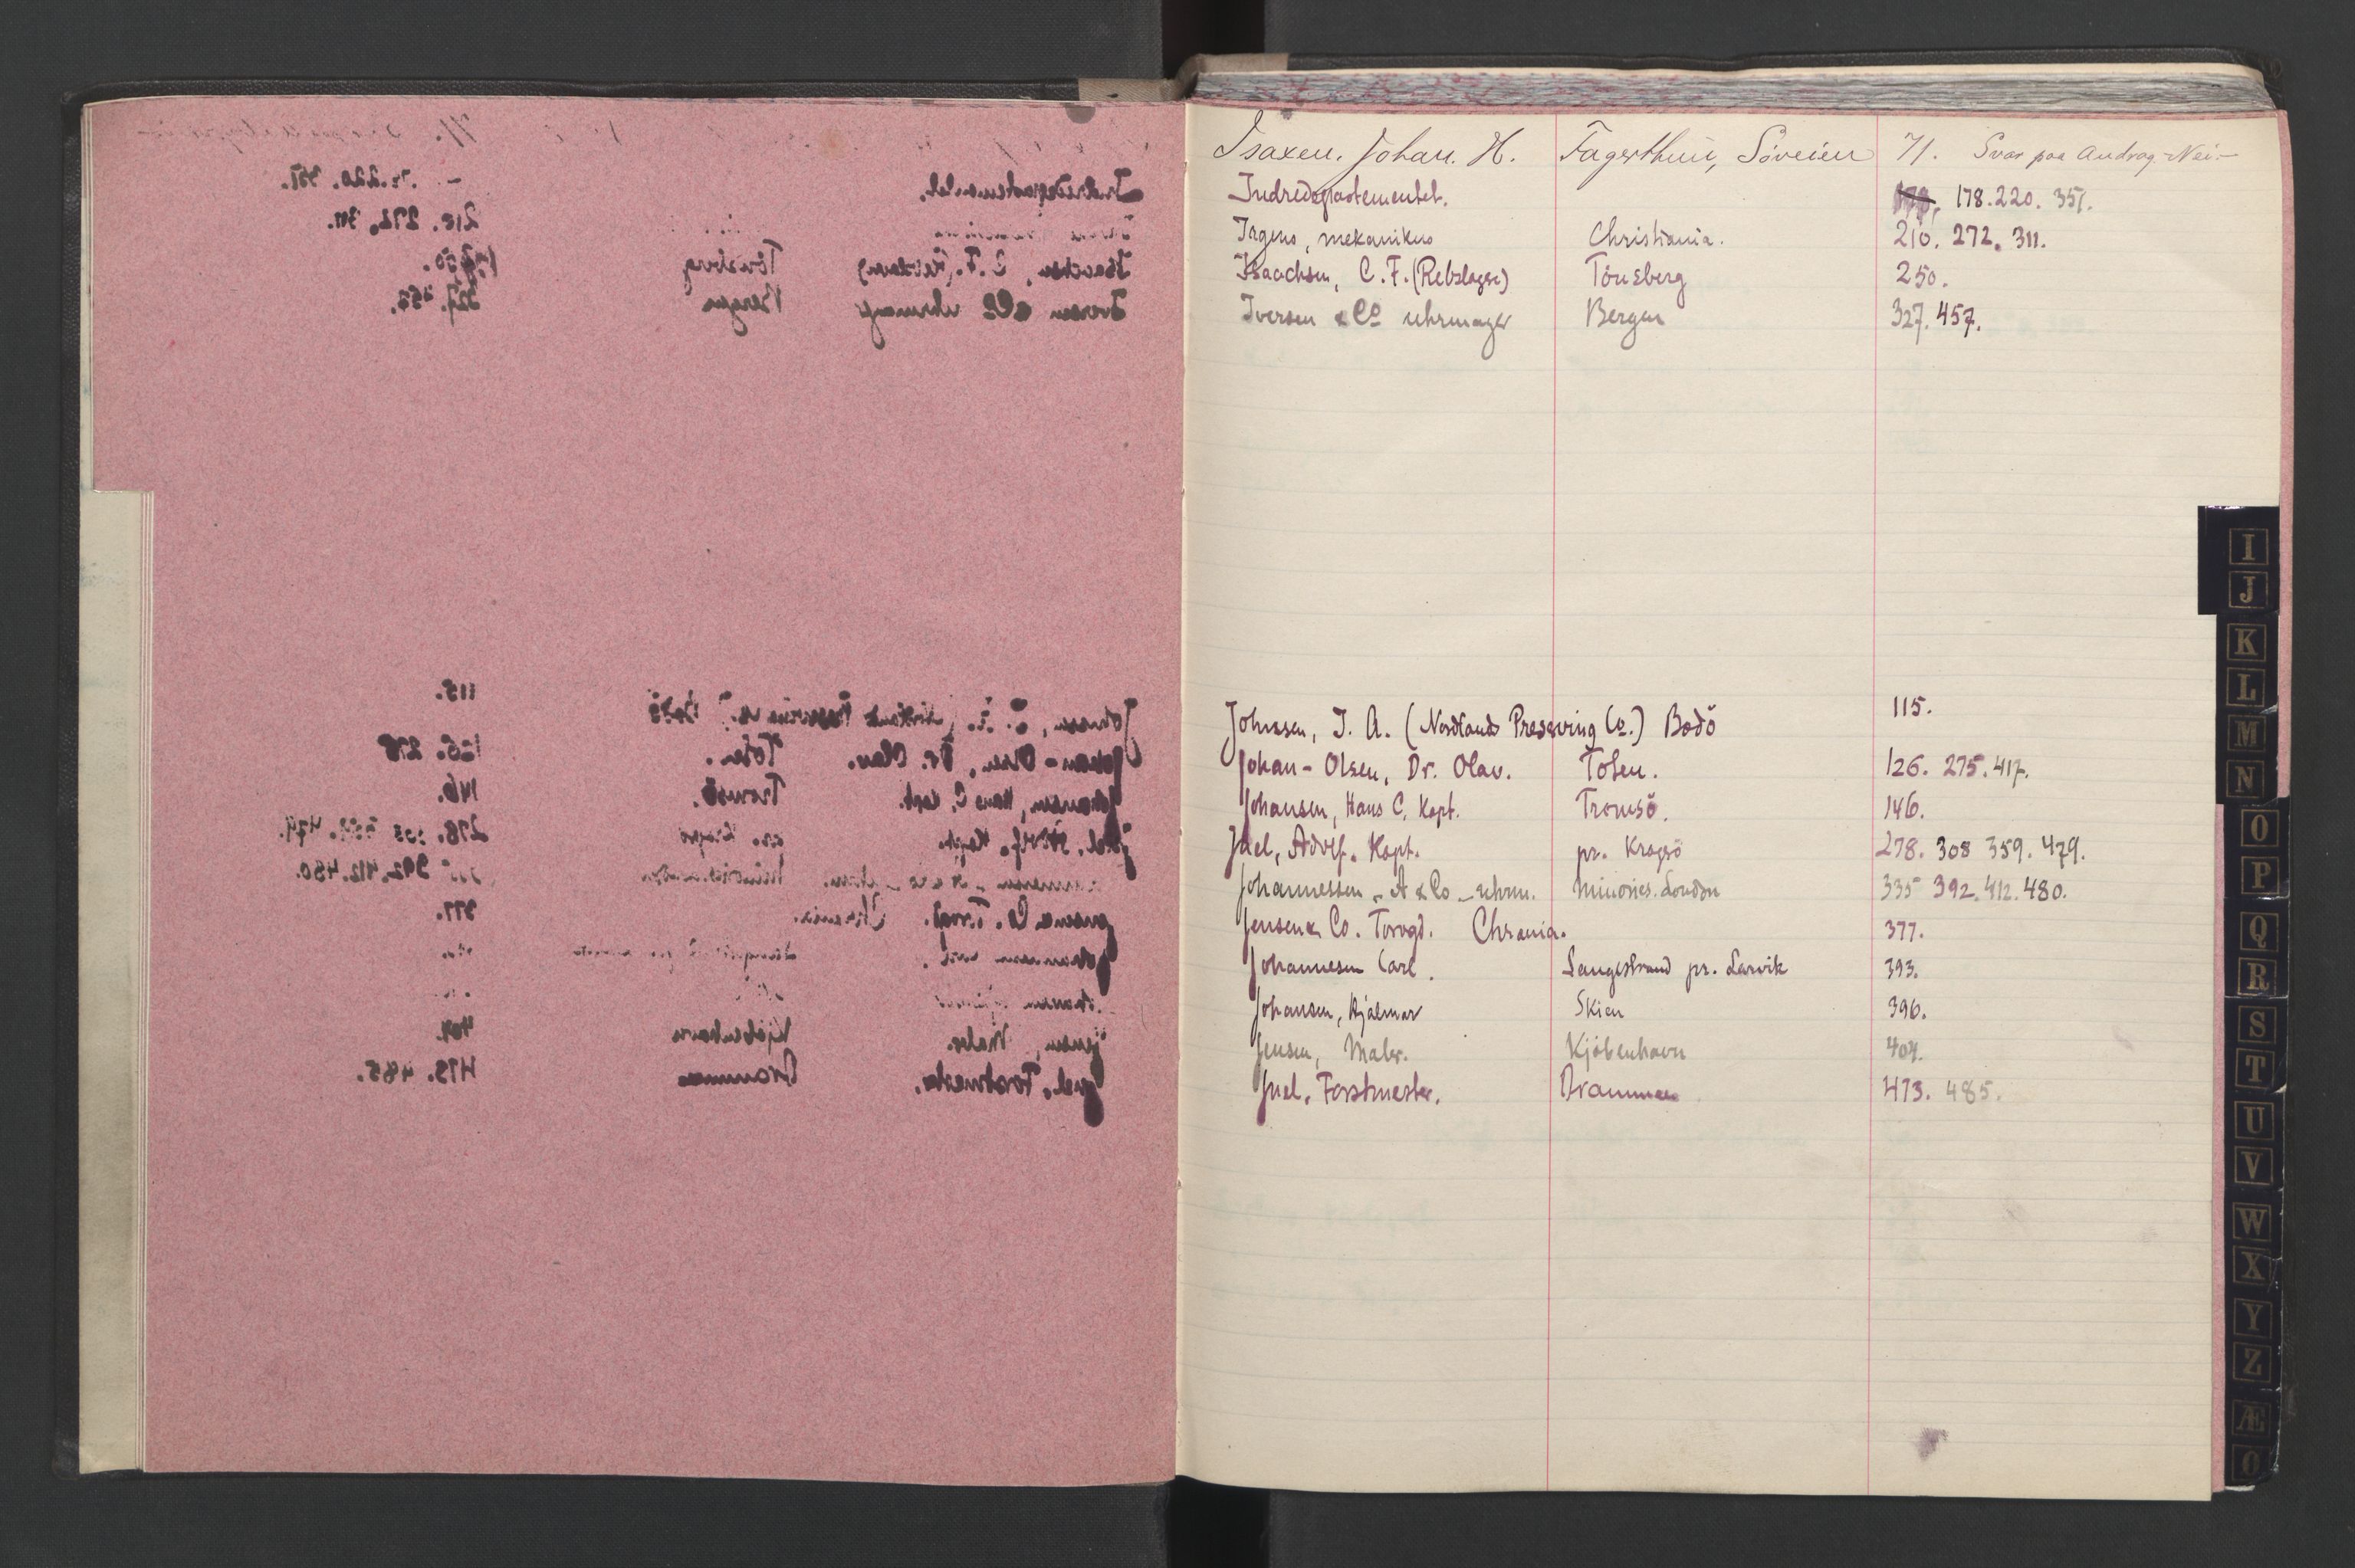 Isaxen. Johan. H. Fagerthun, Söveien 71. Svar paa Andrag. Nei.-
Indredepartementet. 178. 220. 351.
Irgens, mekanikus Christiania. 210. 272. 311.
Isaachsen, C. F. (Rebslager) Tönsberg 250.
Iversen & Co uhrmager Bergen 327. 457.
Johnsen, J. A. (Nordlands Preserving Co.) Bodö 115.
Johan-Olsen, Dr. Olav. Toten. 126. 275. 417.
Johansen, Hans C. Kapt. Tromsö. 146.
Juel, Adolf. Kapt. pr. Kragerö 278. 308 359. 479.
Johannessen - A & Co - uhrm. Minories. London 335 392. 412. 480.
Jensen & Co. Torvgd. Chrania. 377.
Johannesen Carl. Langestrand pr. Larvik 393.
Johansen, Hjalmar Skien 396.
Jensen, Maler. Kjöbenhavn 404.
Juel. Forstmester. Drammen 473. 485.
I
J
K
L
M
N
O
P
Q
R
S
T
U
V
W
X
Y
Z
Æ
Ø